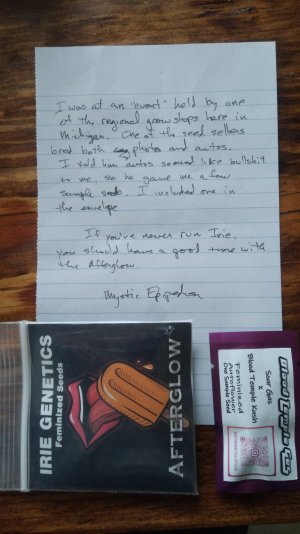 I was at an "event" held by one
of the regional growshops here in
Michigan. One of the seed sellers
bred both reg photos and autos.
I told him autos seemed like bullshit
to me, so he gave me a few
sample seeds. I included one in
the envelope
If you've never run Irie,
you should have a good time with
the Afterglow.
Mystic
IRIE GENETICS
Feminized Seeds
AFTERGLOW
Blood Temple
Sour Gas
X
Blood Temple Kush
Feminized
Autoflower
One Sample Seed